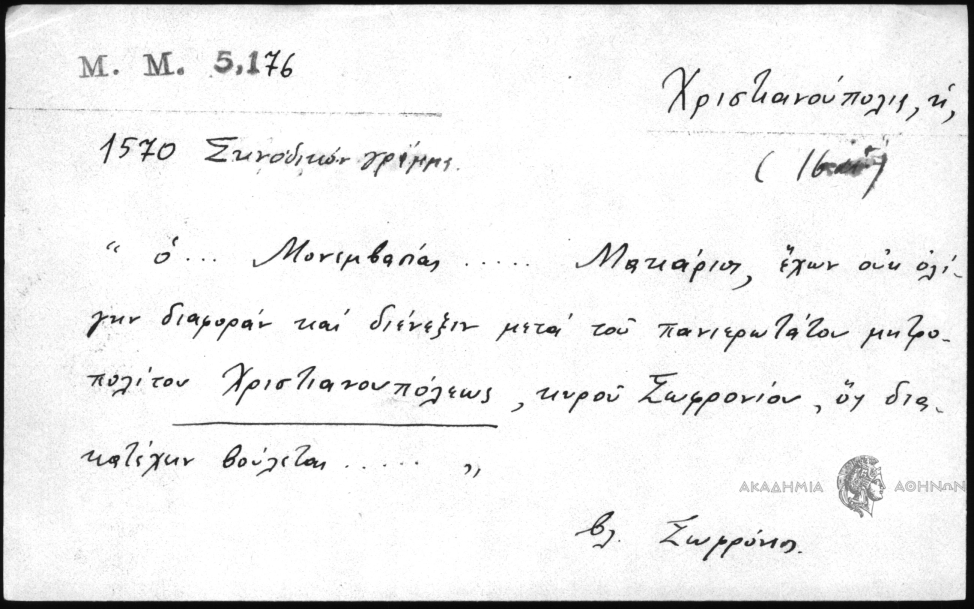 Μ. Μ. 5,176
Χριστιανούπολις, ἡ,
1570 Συνοδικὸν γράμμα.
( 16
“ ὁ... Μονεμβασίας ..... Μακάριος, ἔχων οὐκ ὀλί-
γην διαφορὰν καὶ διένεξιν μετὰ τοῦ πανιερωτάτου μητρο-
πολίτου Χριστιανουπόλεως, κυροῦ Σωφρονίου, ὃς δια-
κατέχειν βούλεται ..... „
ΑΚΑΔΗΜΙΑ ΑΘΗΝΩΝ
βλ. Σωφρόνιος.